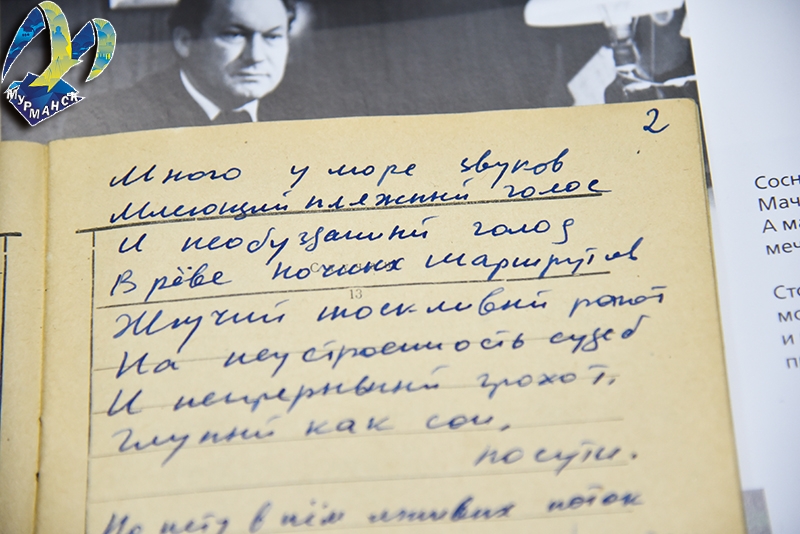 МУРМАНСК
2
Много у моря звуков
Млеющий пляжный голос
И необузданный голод
В рёве ночных маршрутов
13
Жгучий тоскливый ропот
На неустроенность судеб
И непрерывный грохот,
Глупый как сон,
по сути.
Но нету в нём лживых поток
Сосн
Мач
А ма
меч
Сто
мо
и
п